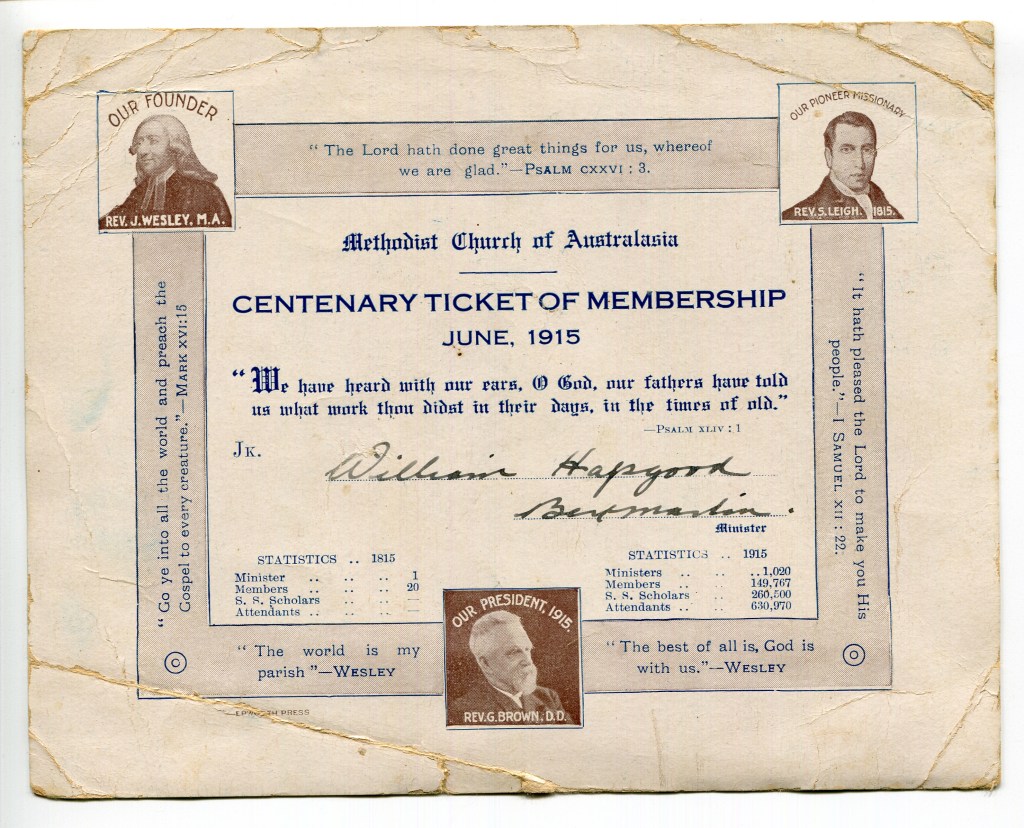 OUR FOUNDER
REV. J. WESLEY, M.A.
OUR PIONEER MISSIONARY
REV. S. LEIGH. 1815.
“ The Lord hath done great things for us, whereof
we are glad.”—PSALM CXXVI : 3.
Methodist Church of Australasia
CENTENARY TICKET OF MEMBERSHIP
JUNE, 1915
“We have heard with our ears, O God, our fathers have told
us what work thou didst in their days, in the times of old.”
—PSALM XLIV : 1
JK.
William Hapgood
Minister
“Go ye into all the world and preach the
Gospel to every creature.”—MARK XVI:15
“It hath pleased the Lord to make you His
people.”—I SAMUEL XII : 22:
STATISTICS .. 1815
Minister .. .. .. 1
Members .. .. .. 20
S. S. Scholars .. .. —
Attendants .. .. .. —
STATISTICS .. 1915
Ministers .. .. .. 1,020
Members .. .. 149,767
S. S. Scholars .. .. 260,500
Attendants .. .. 630,970
“ The world is my
parish ”—WESLEY
OUR PRESIDENT, 1915.
REV. G. BROWN. D.D.
“The best of all is, God is
with us.”—WESLEY
EPWORTH PRESS